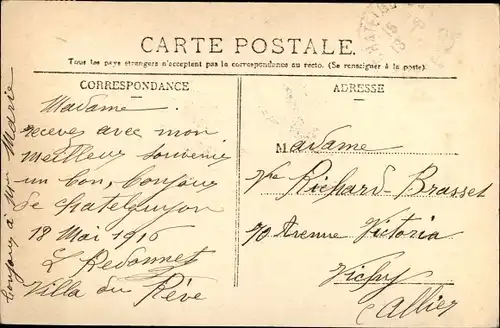 CARTE POSTALE.
Tous les pays étrangers n'acceptent pas la correspondance au recto. (Se renseigner à la poste).
CORRESPONDANCE
Madame
recevez avec mon
meilleur souvenir
un bon, bonjour
de Chatelguyon
18 Mai 1916
L Redonnet
Villa du Rêve
bonjour à Marie
ADRESSE
Madame
Vve Richard-Brasset
70 Avenue Victoria
Vichy
Allier